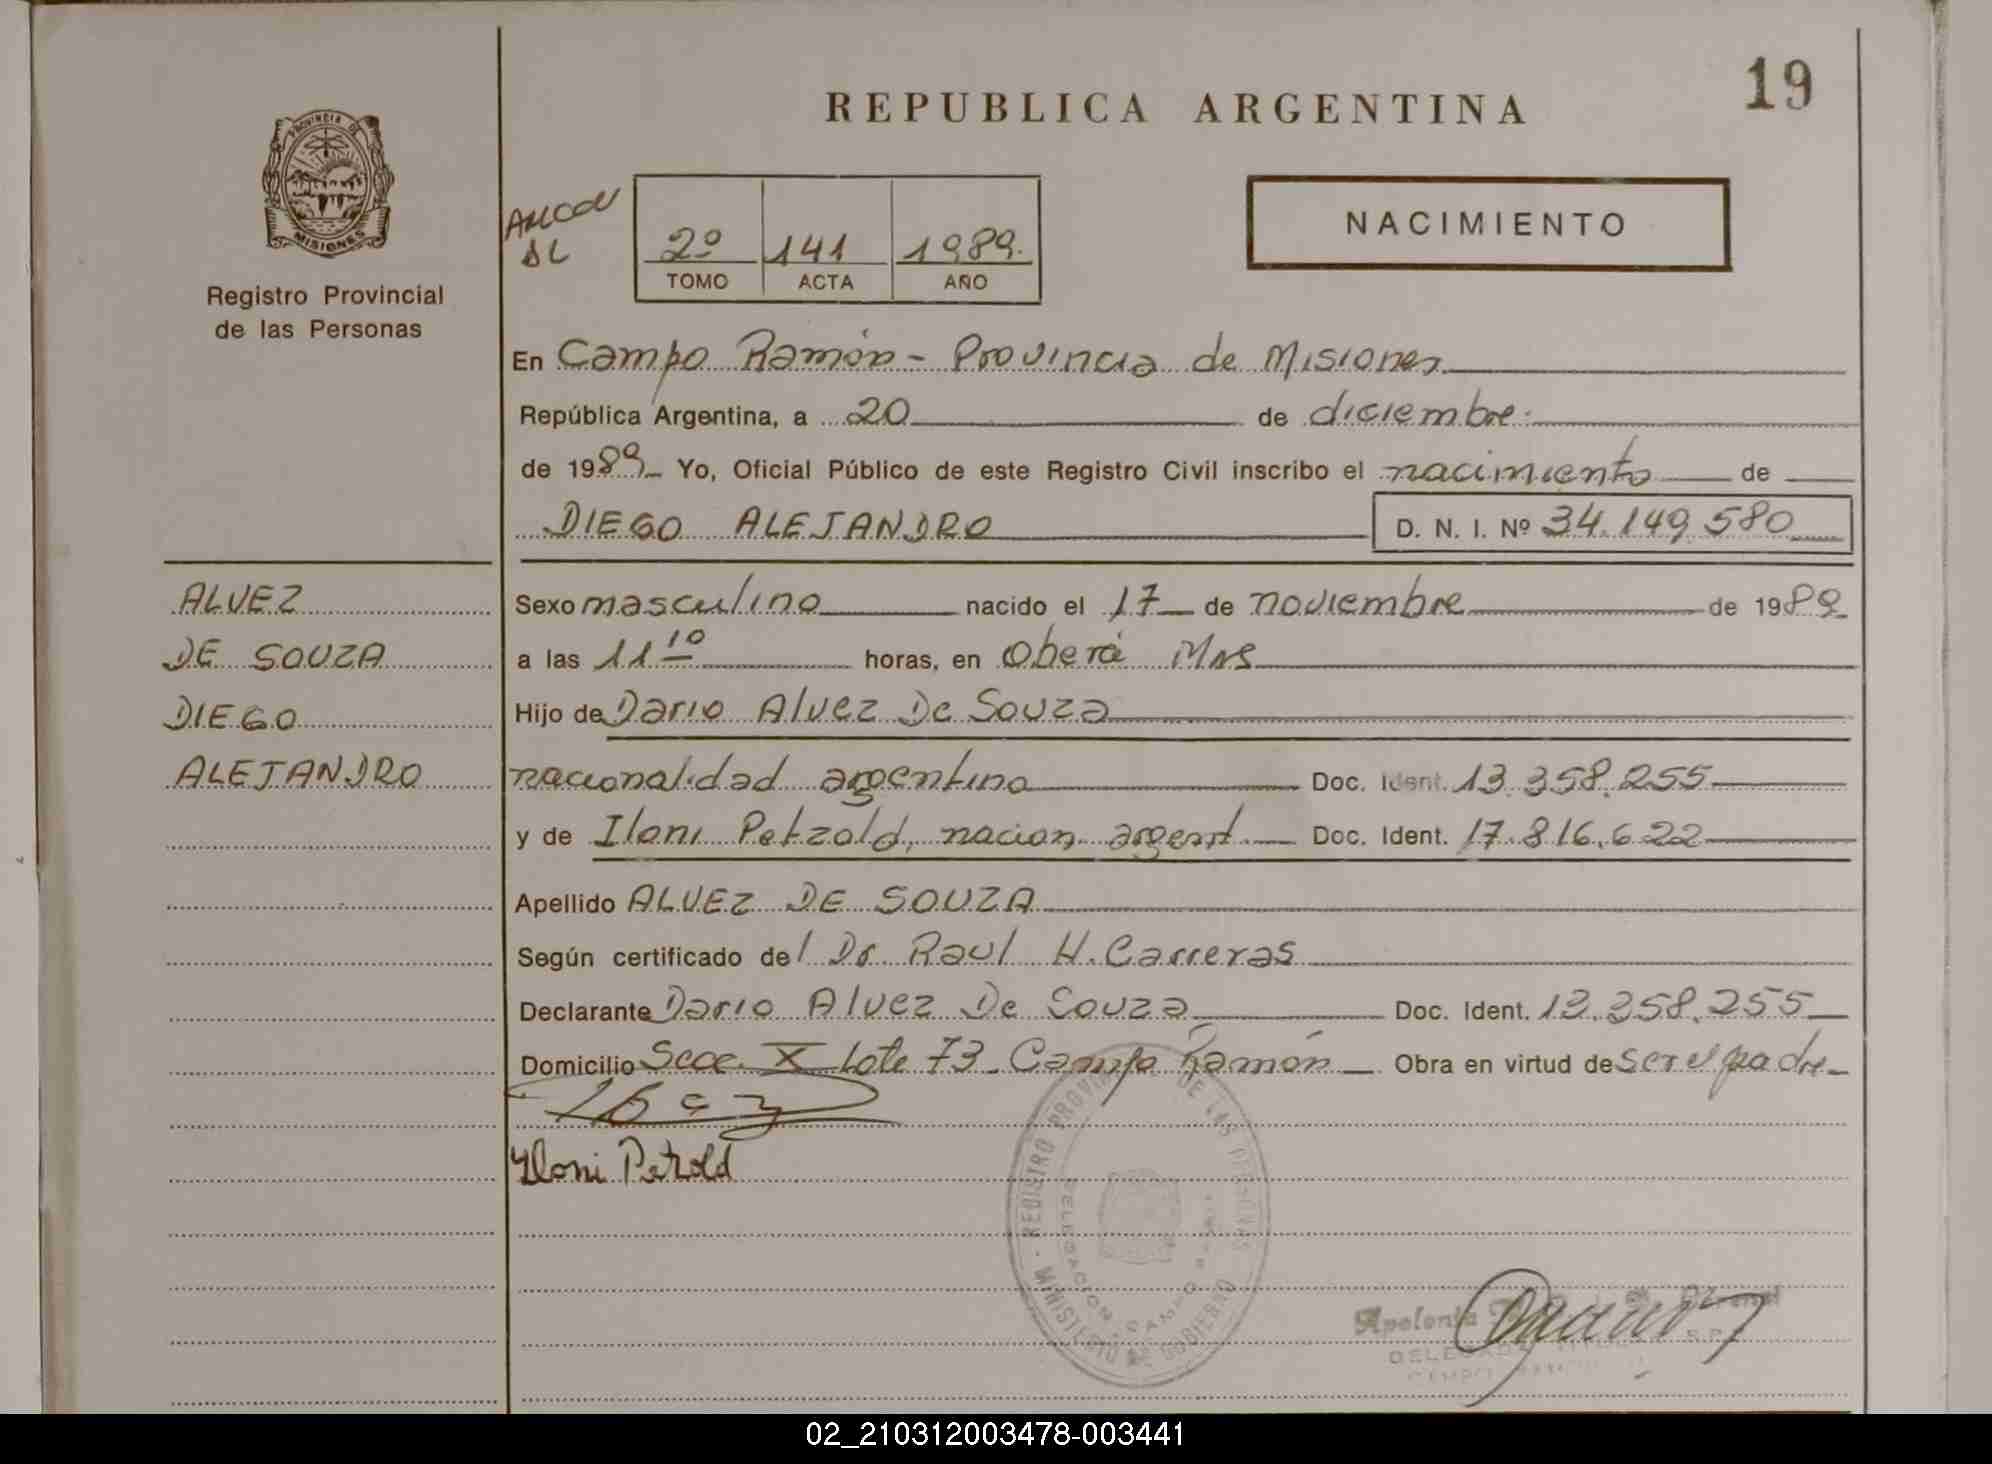 19
REPUBLICA ARGENTINA
PROVINCIA DE
MISIONES
Registro Provincial
de las Personas
2º 141 1989.
TOMO ACTA AÑO
NACIMIENTO
En Campo Ramón - Provincia de Misiones
República Argentina, a 20 de diciembre.
de 1989 Yo, Oficial Público de este Registro Civil inscribo el nacimiento de
DIEGO ALEJANDRO D. N. I. Nº 34.149.580
ALVEZ
DE SOUZA
DIEGO
ALEJANDRO
Sexo masculino nacido el 17 de noviembre de 1989
a las 11 10 horas, en Oberá Mns
Hijo de Dario Alvez De Souza
nacionalidad argentino Doc. Ident. 13.358.255
y de Iloni Petzold, nacion. argent. Doc. Ident. 17.816.622
Apellido ALVEZ DE SOUZA
Según certificado del Dr. Raul H. Carreras
Declarante Dario Alvez De Souza Doc. Ident. 13.358.255
Domicilio Secc. X Lote 73 - Campo Ramón Obra en virtud de ser el padre
Iloni Petzold
REGISTRO PROVINCIAL DE LAS PERSONAS
MINISTERIO DE GOBIERNO
DELEGACION CAMPO RAMON
02_210312003478-003441